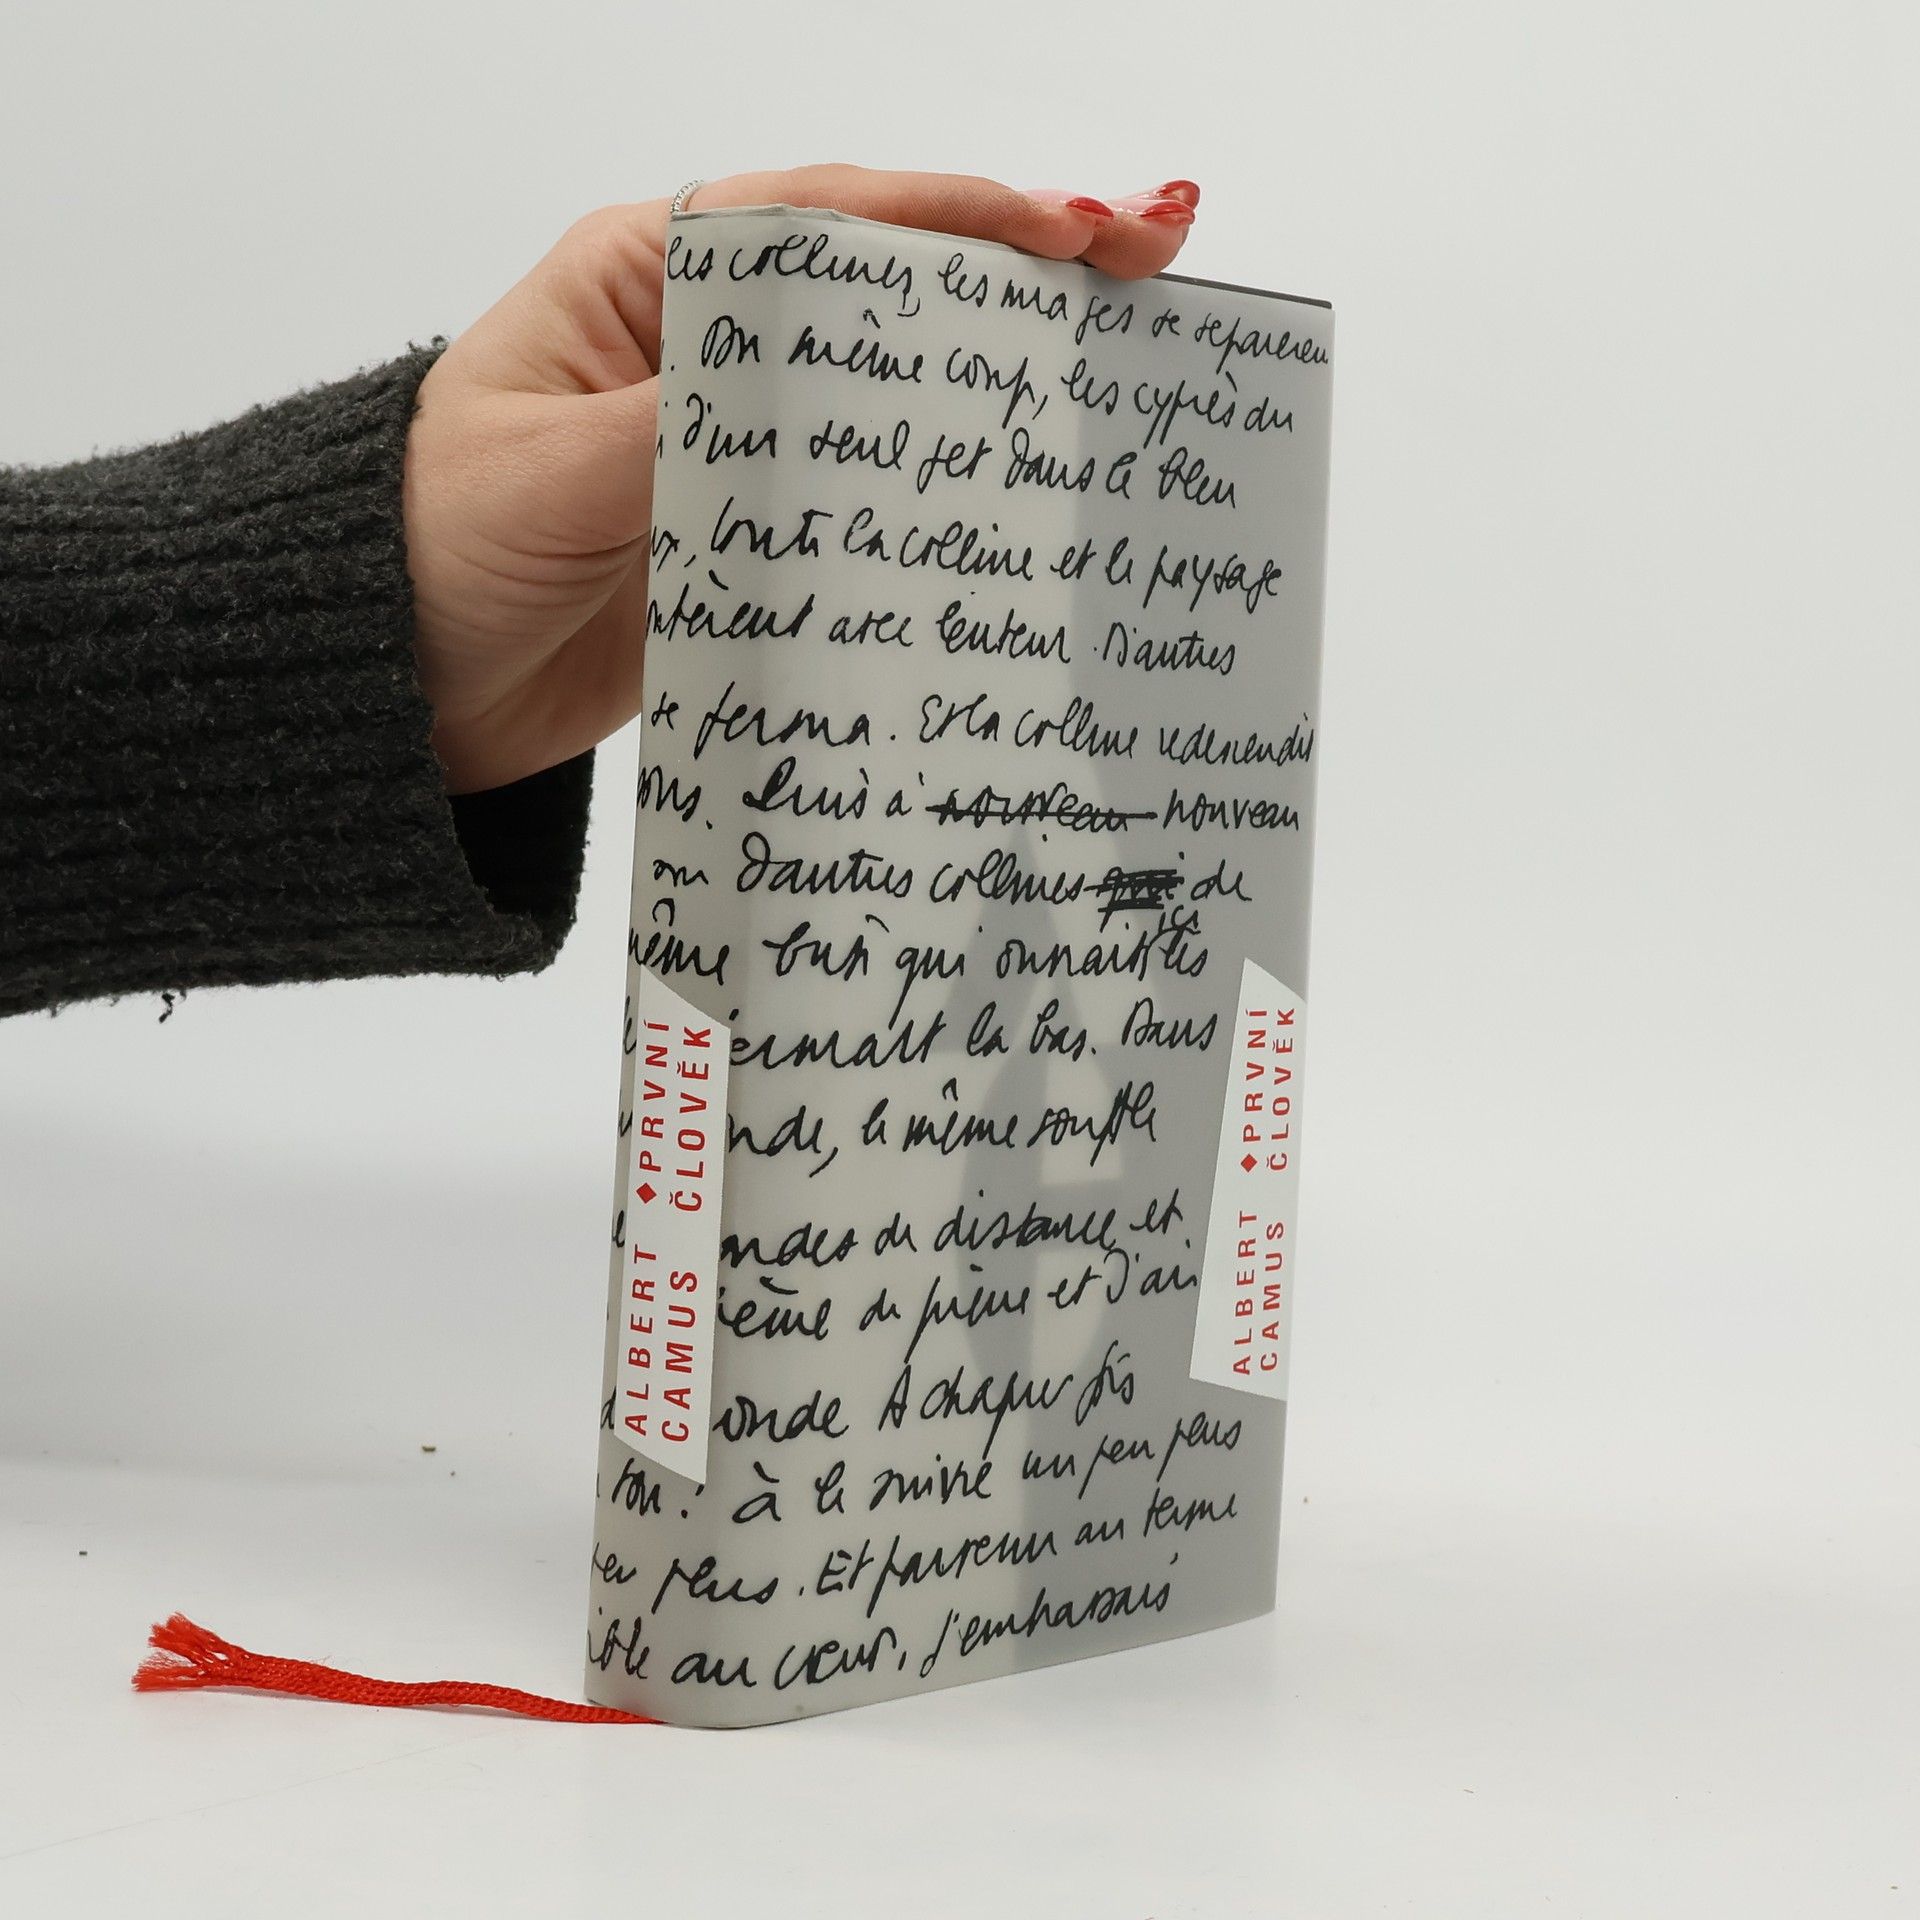 les collines, les nuages se séparèren
. Du même coup, les cyprès du
d'un seul jet dans le bleu
ux, toute la colline et le paysage
ntèrent avec lenteur. D'autres
se ferma. Et la colline redescendit
ous. Puis à nouveau nouveau
ou D'autres collines qui de
même buti qui ouvrait ici les
ermait la bas. Dans
nde, le même souffle
ondes de distance et
ième de pierre et d'air
onde A chaque fois
son : à le suivre un peu plus
plus. Et parvenu au terme
ible au cœur, j'embrassais
ALBERT ♦PRVNÍ
CAMUS ČLOVĚK
ALBERT ♦PRVNÍ
CAMUS ČLOVĚK